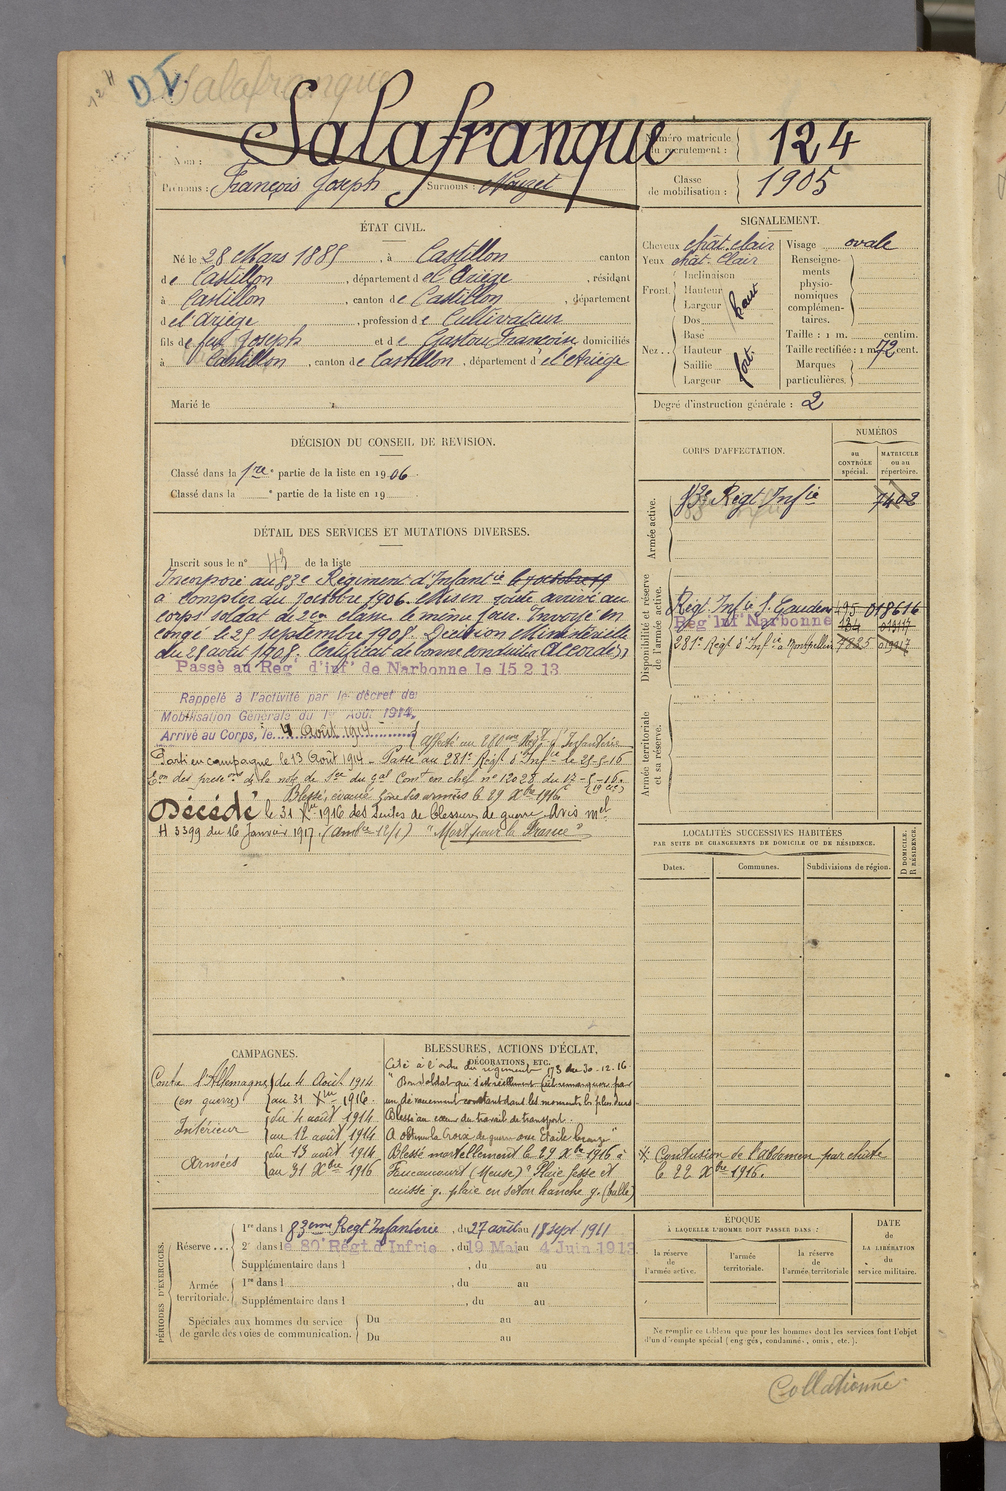 12 H
D I.
Salafranque
Salafranque
Nom :
Prénoms : François Joseph Surnoms : Nouzet
Numéro matricule du recrutement : 124
Classe de mobilisation : 1905
ÉTAT CIVIL.
Né le 28 Mars 1885, à Castillon canton
de Castillon, département de l'Ariège, résidant
à Castillon, canton de Castillon, département
de l'Ariège, profession de Cultivateur
fils de feu Joseph et de Gaston Françoise, domiciliés
à Castillon, canton de Castillon, département de l'Ariège
Marié le
SIGNALEMENT.
Cheveux chât. clair Visage ovale
Yeux chât. Clair
Front. Inclinaison
Hauteur
Largeur
haut
Nez.. Dos
Base
Hauteur
Saillie
Largeur
fort.
Renseignements physionomiques complémentaires.
Taille : 1 m. centim.
Taille rectifiée : 1 m 72 cent.
Marques particulières.
Degré d'instruction générale : 2
DÉCISION DU CONSEIL DE REVISION.
Classé dans la 1re partie de la liste en 1906.
Classé dans la ° partie de la liste en 19
DÉTAIL DES SERVICES ET MUTATIONS DIVERSES.
Inscrit sous le n° 43 de la liste
Incorporé au 83e Régiment d'Infantie le 7 octobre
à compter du 7 octobre 1906. Mis en route arrivé au
corps soldat de 2eme classe le même jour. Envoyé en
congé le 25 septembre 1908. Décision Ministérielle
du 28 août 1908. Certificat de bonne conduite Accordé
Passé au Reg' d'inf' de Narbonne le 15 2 13
Rappelé à l'activité par le décret de
Mobilisation Générale du 1er Août 1914.
Arrivé au Corps, le 4 Août 1914
Affecté au 280me Regt d'Infanterie
Parti en campagne le 13 Août 1914 - Passé au 281e Régt d'Infie le 25-5-16
Eon des prescons de la note de Sce du Gal Comt en chef n° 12028 du 17-5-16.
Blessé, évacué zone des armées le 29 Xbre 1916
Décédé le 31 Xbre 1916 des suites de blessures de guerre. Avis Mel
H 3399 du 16 Janvier 1917. "Mort pour la France"
CORPS D'AFFECTATION.
NUMÉROS
au CONTRÔLE spécial.
MATRICULE ou au répertoire.
Armée active.
83e Régt Infie 7402
Disponibilité et réserve de l'armée active.
Régt Infie St Gaudens 495 018616
Rég' Inf' Narbonne 484 01317
281e Régt d'Infie à Montpellier 7825
Armée territoriale et sa réserve.
LOCALITÉS SUCCESSIVES HABITÉES
PAR SUITE DE CHANGEMENTS DE DOMICILE OU DE RÉSIDENCE.
Dates. Communes. Subdivisions de région.
D DOMICILE. R RÉSIDENCE.
CAMPAGNES.
Contre l'Allemagne du 4 Août 1914
(en guerre) au 31 Xbre 1916.
Intérieur du 4 août 1914
au 12 août 1914
Armées du 13 août 1914
au 31 Xbre 1916
BLESSURES, ACTIONS D'ÉCLAT,
DÉCORATIONS, ETC.
Cité à l'ordre du régiment 173 du 30-12-16
"Bon soldat qui s'est réellement fait remarquer par
un dévouement constant dans les moments les plus durs
Blessé au cours du travail de transport.
A obtenu la Croix de guerre avec Etoile bronze"
Blessé mortellement le 29 Xbre 1916 à
(Meuse) "Plaie fesse et
cuisse g. plaie en séton hanche g. (balle)
* Contusion de l'abdomen par chute
le 22 Xbre 1916.
PÉRIODES D'EXERCICES.
Réserve... 1re dans l 83eme Regt Infanterie, du 27 août au 18 sept 1911
2e dans l e 80e Régt d'Infrie, du 19 Mai au 4 Juin 1913
Supplémentaire dans l , du au
Armée territoriale. 1re dans l , du au
Supplémentaire dans l , du au
Spéciales aux hommes du service de garde des voies de communication. Du au
Du au
ÉPOQUE
À LAQUELLE L'HOMME DOIT PASSER DANS :
la réserve de l'armée active.
l'armée territoriale.
la réserve de l'armée territoriale
DATE de LA LIBÉRATION du service militaire.
Ne remplir ce tableau que pour les hommes dont les services font l'objet
d'un décompte spécial (engagés, condamnés, omis, etc.).
Collationné